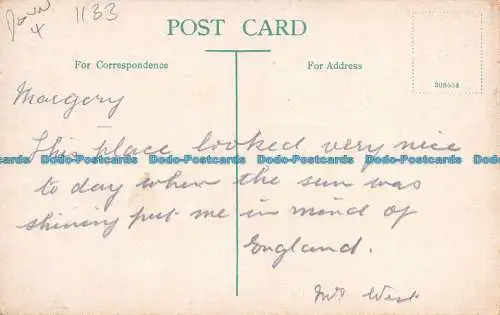 Down
4
1133
POST CARD
For Correspondence
For Address
308554
Margery
This place looked very nice
Dodo-Postcards Dodo-Postcards Dodo-Postcards Dodo-Postcards
to day when the sun was
shining put me in mind of
England.
Mrs West